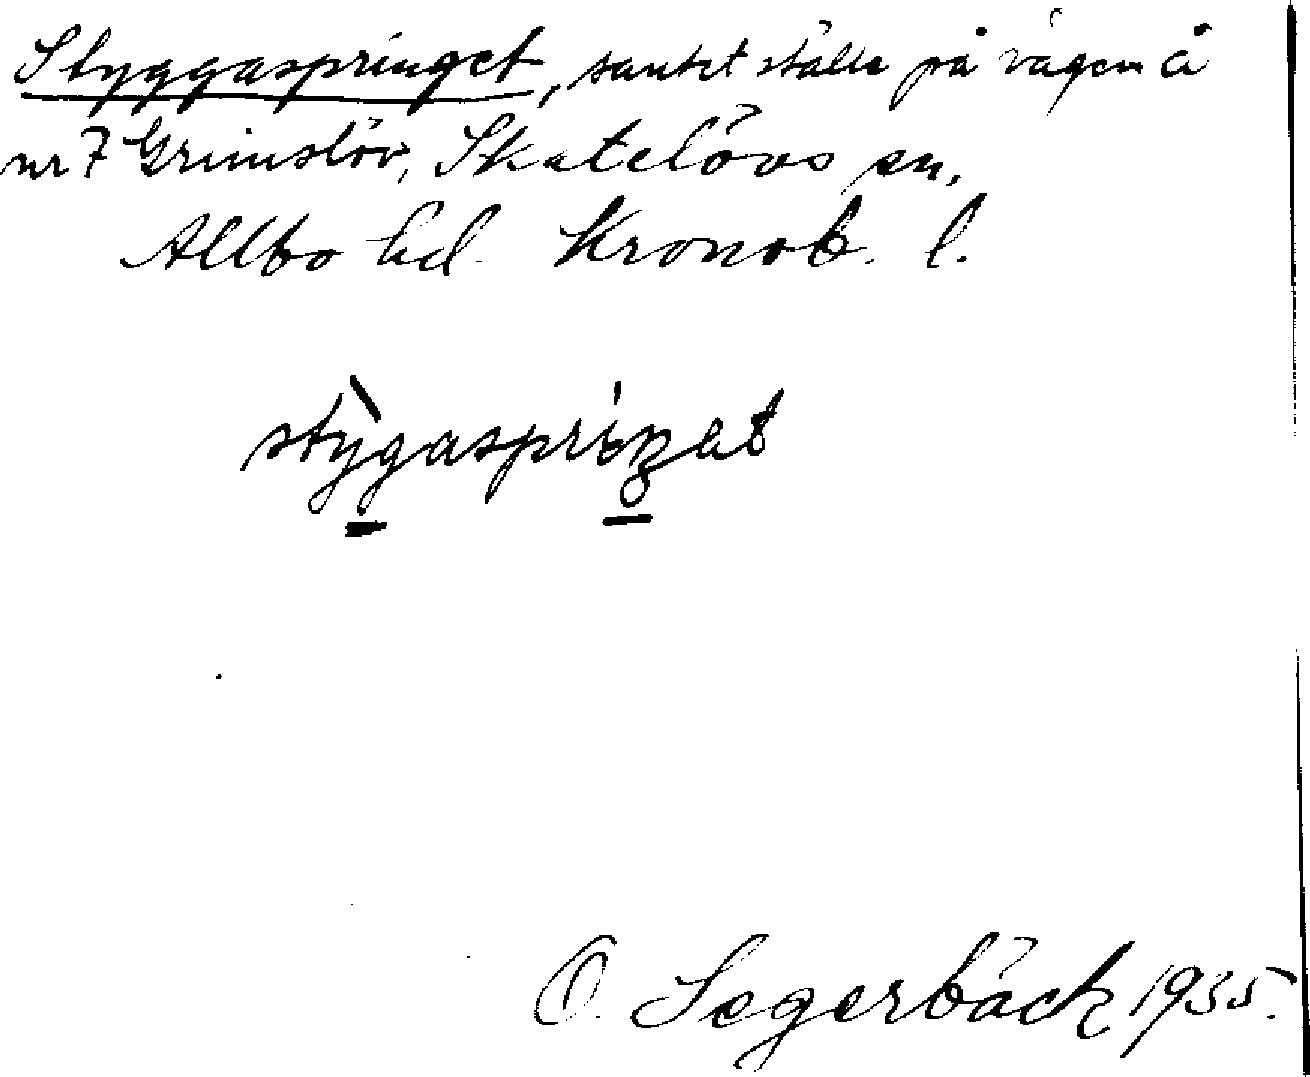 Styggaspringet, sankt ställe på vägen å
nr 7 Grimslöv, Skatelövs sn,
Allbo hd. Kronob. l.
stỳgaspríŋet
O. Segerbäck 1935.